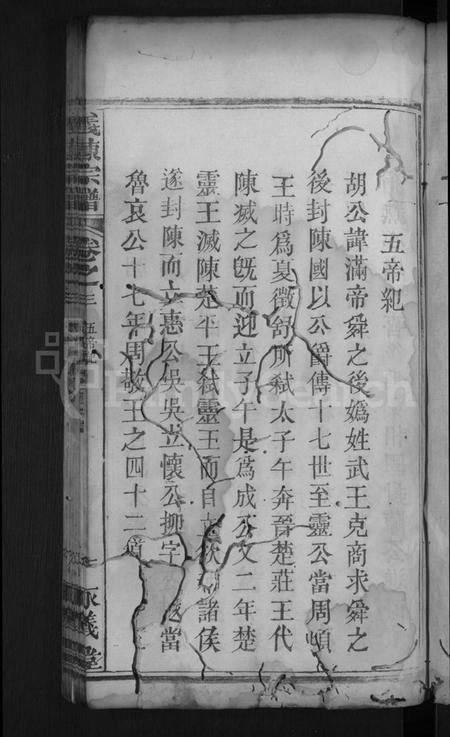 五帝紀
胡公諱滿帝舜之後媯姓武王克商求舜之
後封陳國以公爵傳十七世至靈公當周頃
王時爲夏徵舒所弑太子午奔晉楚莊王代
陳滅之旣而迎立子午是爲成公又二年楚
靈王滅陳楚平王弑靈王而自立欲諸侯
遂封陳而立惠公吳吳立懷公柳字當
魯哀公十七年周敬王之四十二
義陳宗譜
卷之三
五帝紀
義堂
FamilySearch